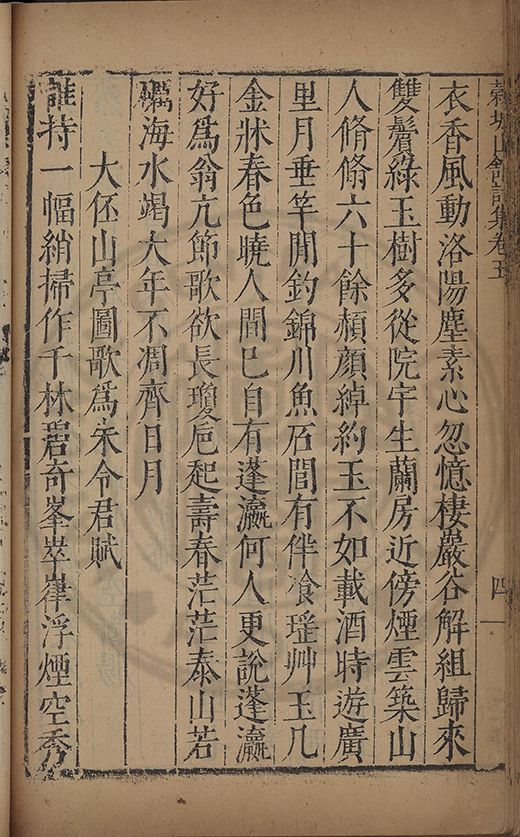 穀城山館詩集卷五
四
衣香風動洛陽塵素心忽憶棲巖谷解組歸來
雙鬢綠玉樹多從院宇生蘭房近傍煙雲築山
人脩脩六十餘頳顏綽約玉不如載酒時遊廣
里月垂竿閒釣錦川魚石間有伴飡瑤艸玉几
金牀春色曉人間已自有蓬瀛何人更說蓬瀛
好為翁亢節歌欲長瓊卮起壽春茫茫泰山若
礪海水竭大年不凋齊日月
大伾山亭圖歌為朱令君賦
誰持一幅綃掃作千林碧奇峯崒嵂浮煙空秀